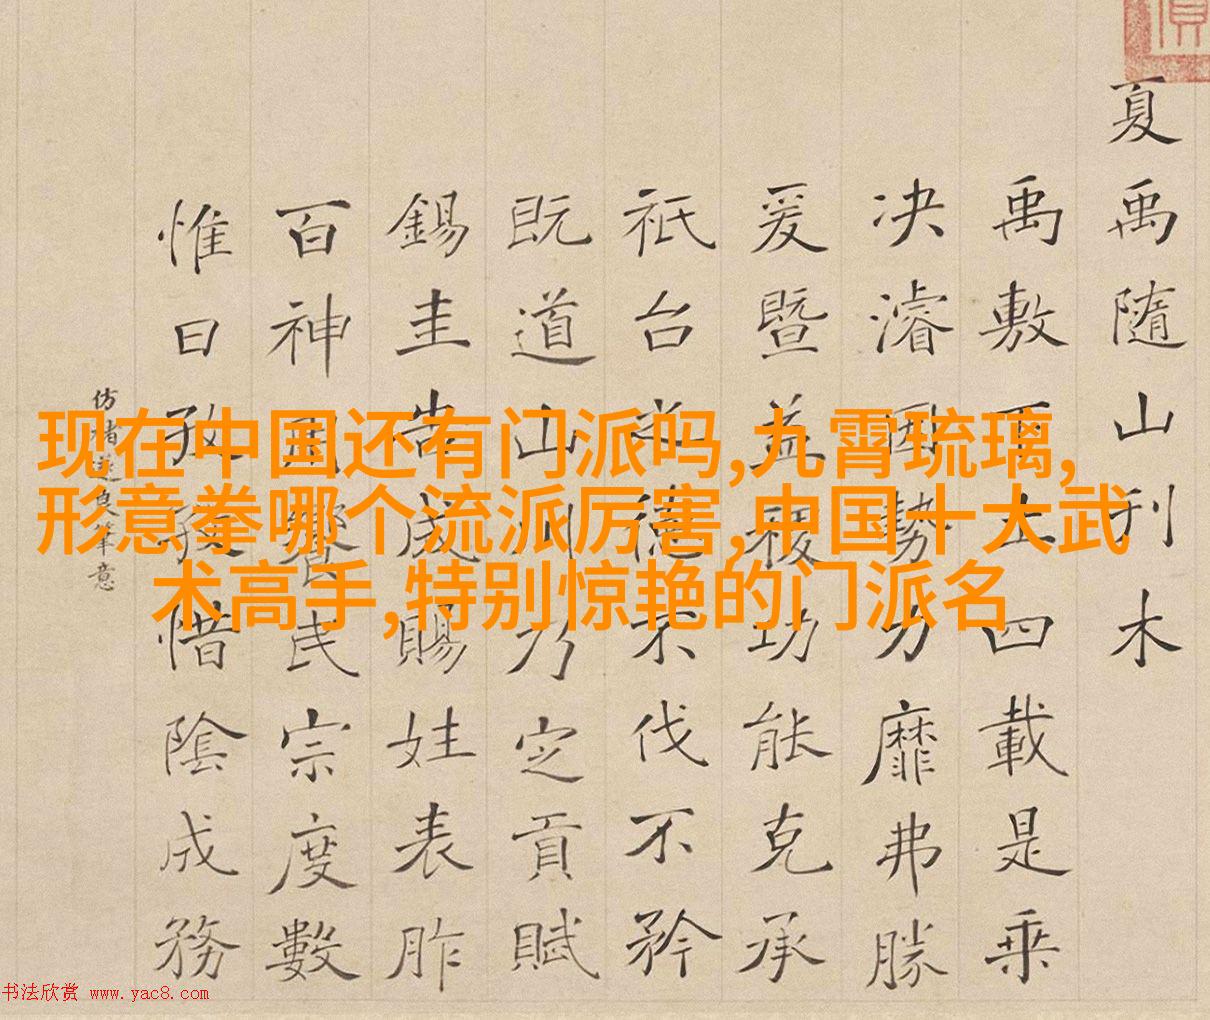 现在中国还有门派吗,九霄琉璃,
形意拳哪个流派厉害,中国十大武
术高手,特别惊艳的门派名
夏禹隨山刊木
禹敷下土四載是乘
决濬因勢力靡弗勝
爰暨益稷功能克承
祇台之德不伐不矜
既道山川乃定貢賦
錫圭告成賜姓表胙
百神饗民宗度數
惟日孜孜惜陰成務
仿褚遂良筆意
书法欣赏 www.yac8.com